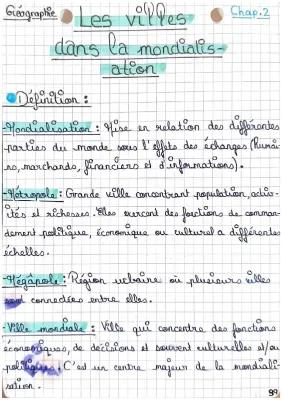 Géographie Les villes Chap. 2
dans la mondialis-
ation
Définition :
-Mondialisation : Mise en relation des différentes
parties du monde sous l'effets des échanges (humai-
ns, marchands, financiers et d'informations).
-Métropole : Grande ville concentrant population, activ-
ités et richesses. Elles exercent des fonctions de comman-
dement politique, économique ou culturel a différentes
échelles.
-Mégapole : Région urbaine où plusieurs villes
sont connectées entre elles.
-Ville mondiale : Ville qui concentre des fonctions
économiques, de décisions et souvent culturelles et/ou
politiques. C'est un centre majeur de la mondiali-
sation.